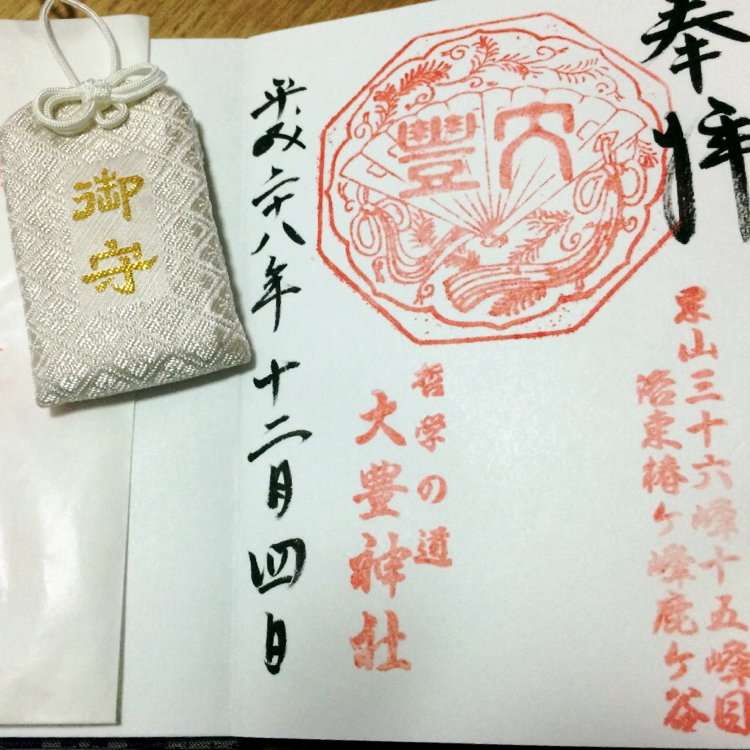 奉拝
東山三十六峰十五峰目
洛東椿ケ峰鹿ケ谷
大豊
哲学の道
大豊神社
平成二十八年十二月四日
御守